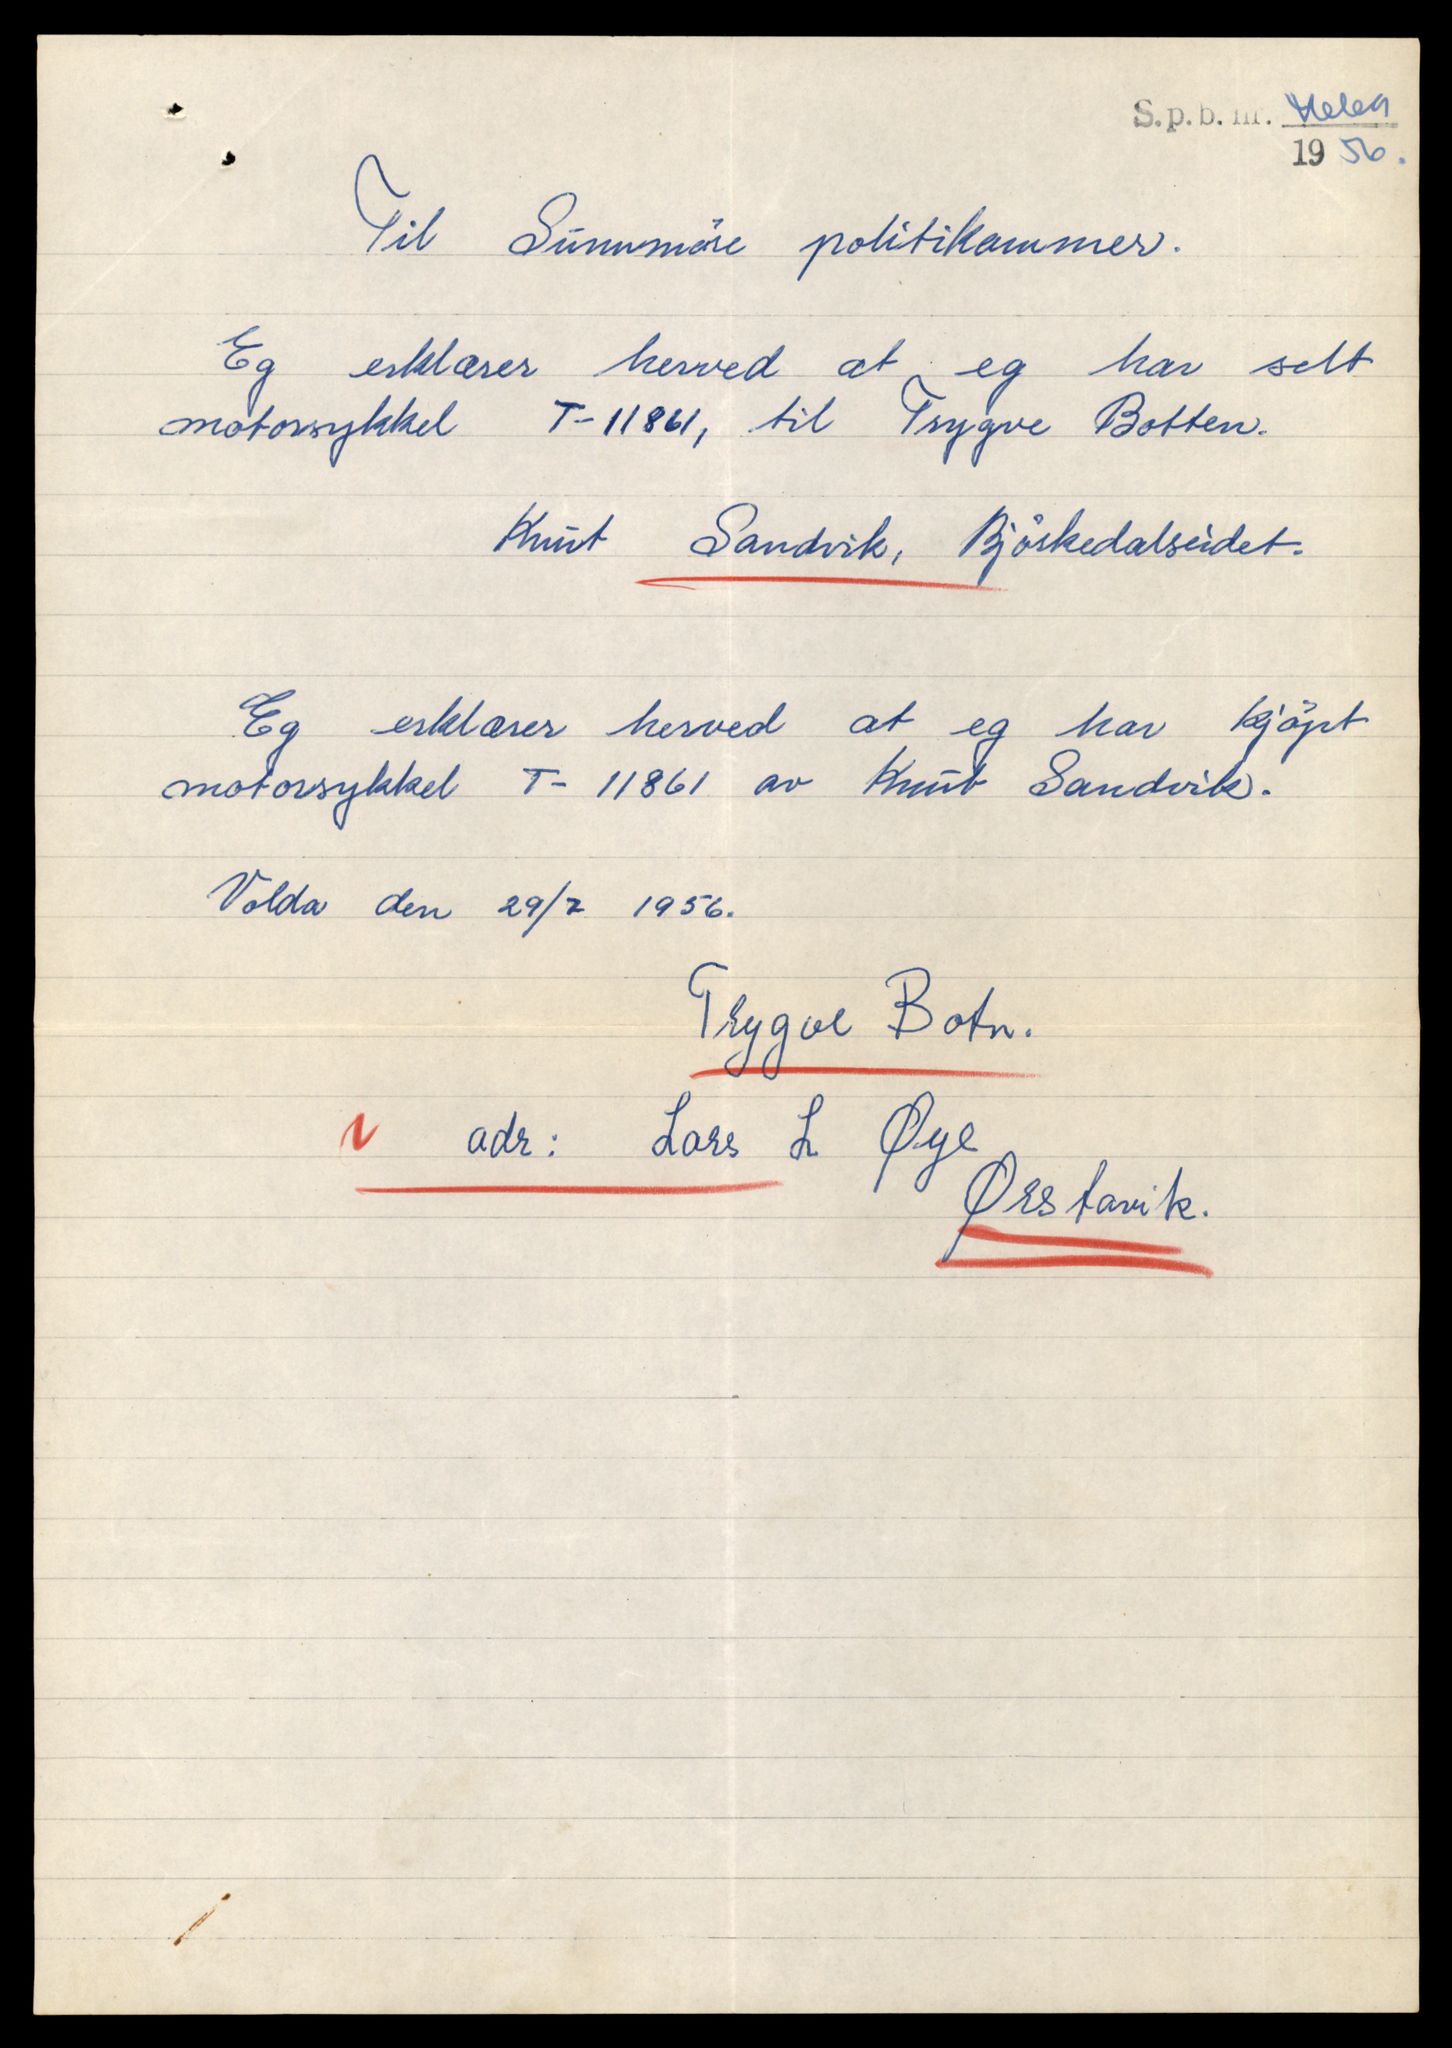 S.p.b. nr.
19 56.
Til Sunnmöre politikammer.
Eg erklærer herved at eg har selt
motorsykkel T-11861, til Trygve Botten.
Knut Sandvik, Björkedalseidet.
Eg erklærer herved at eg har kjöpt
motorsykkel T-11861 av Knut Sandvik.
Volda den 29/7 1956.
Trygve Botn.
adr: Lars L Øye
Ørstavik.